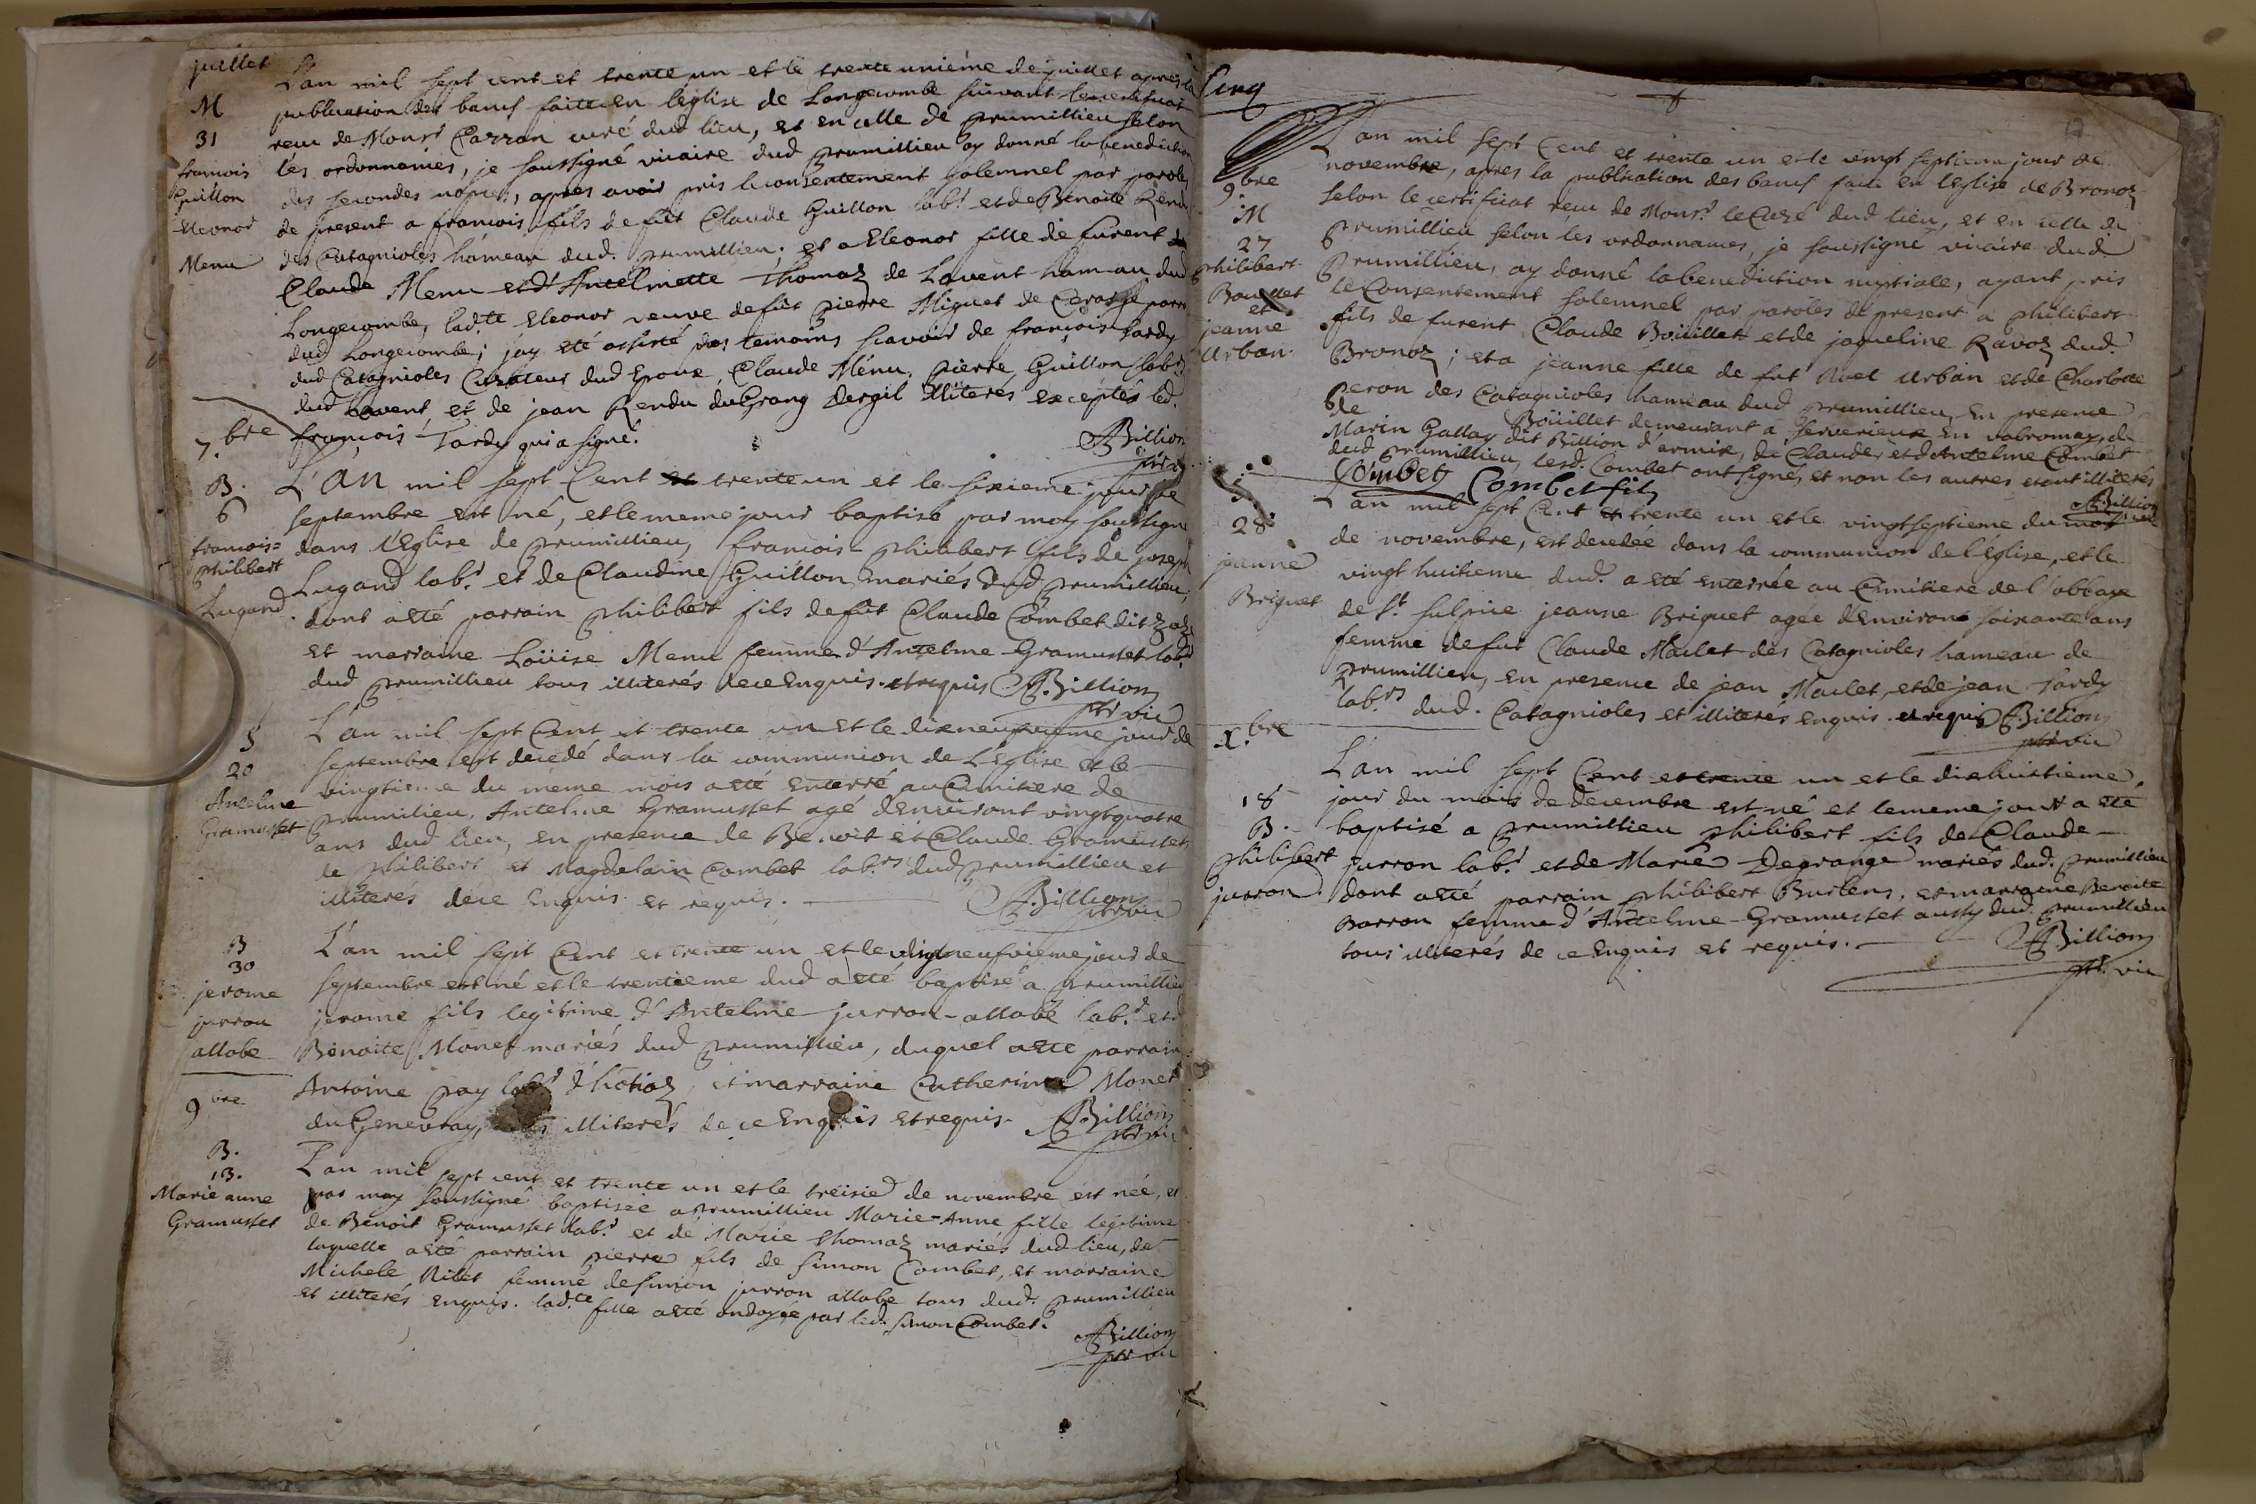 juillet
M
31
francois
Guillon
Eleonor
Menu
L'an mil sept cent et trente un et le trente unième de juillet apres la
publication des bancs faitte en leglise de Longecombe suivant le certificat
receu de Monsr Carran curé dud lieu, et en celle de prumillieu selon
les ordonnances, je soussigné vicaire dud prumillieu ay donné la benediction
des secondes nopces, apres avoir pris le consentement solemnel par paroles
de present a francois fils de fût Claude Guillon labr et de Benoite Rendu
des Catagnioles hameau dud. prumillieu; et a Eleonor fille de furent
Claude Menu et d'Antelmette Thomaz de Lavent hameau dud
Longecombe, lad.te Eleonor veuve de fût pierre Miguet de parr
dud Longecombe; jay eté assisté des temoins scavoir de françois tardy
dud Catagnioles Curateur dud Epoux, Claude Ménu, pierre Guillon labrs
dud Lavent et de jean Rendu du Grang dergil illiterés exceptés led.
françois Tardy qui a signé.
Billion
ptr vic
7.bre
B.
6
francois=
philibert
Lugand
L'AN mil sept Cent et trente un et le sixieme jour de
septembre est né, et le meme jour baptisé par moy soussigné
dans l'Eglise de prumillieu, francois philibert fils de joseph
Lugand labr et de Claudine Guillon mariés dud prumillieu,
dont a eté parrain philibert fils de fût Claude Combet dit
et marraine Loüise Menu femme d'Antelme Gramusset labr
dud prumillieu tous illiterés de ce Enquis et requis Billion
ptr vic
S
20
Antelme
Gramusset
L'an mil sept Cent et trente un et le dixneuvieme jour de
septembre est decedé dans la communion de L'Eglise et le
vingtieme du même mois a eté Enterré au Cimitiere de
prumilieu, Antelme Gramusset agé denviront vingt quatre
ans dud lieu, en presence de Benoit et Claude Gramusset,
de philibert et Magdelain Combet lab.rs dud prumillieu et
illiterés de ce Enquis et requis.
Billion
ptr vic
B
30
jerome
jurron
allobe
L'an mil sept Cent et trente un et le vingtneufvieme jour de
septembre est né et le trentieme dud a eté baptisé a prumillieu
jerome fils legitime d'Antelme jurron-allobe lab.r et d
Benoite Monet mariés dud prumillieu, duquel a eté parrain
Antoine pay labr d'hostiaz, et marraine Catherine Monet
du Genevray, illiterés de ce Enquis et requis. Billion
ptr vic
9bre
B.
13.
Marie anne
Gramusset
L'an mil sept cent et trente un et le treisie de novembre est née, et
par moy soussigné baptisée a prumillieu Marie-Anne fille legitime
de Benoit Gramusset labr et de Marie Thomaz mariés dud lieu, de
laquelle a eté parrain pierre fils de simon Combet, et marraine
Michele Ritet femme de simon jurron allobe tous dud. prumillieu
et illiterés Enquis. lad.te fille a eté ondoyée par led. simon Combet.
Billion
ptr vic
Cinq
9bre
M
27
philibert
Bouillet
et
jeanne
Urban.
L'an mil sept Cent et trente un et le vingt septieme jour de
novembre, apres la publication des bancs faitte en leglise de Bronoz
selon le certificat receu de Monsr. le Curé dud lieu, et en celle de
prumillieu selon les ordonnances, je soussigné vicaire dud
prumillieu, ay donné la benediction nuptiale, ayant pris
le Consentement solemnel par paroles de present a philibert
fils de furent Claude Bouillet et de jaqueline Ravoz dud.
Bronoz; et a jeanne fille de fût Noel Urban et de Charlotte
peron des Catagnioles hameau dud prumillieu, En presence
de Boüillet demeurant a serverieux en valromay, de
Marin Gallay dit Billion d'armix, de Claude, et d'Antelme Combet
dud prumillieu, lesd. Combet ont signé, et non les autres etant illiterés
Combet Combet fils
Billion
28
jeanne
Briguet
L'an mil sept Cent et trente un et le vingt septieme du mois
de novembre, est decedée dans la communion de l'Église, et le
vingt huitieme dud. a eté enterrée au Cimitiere de l'abbaye
de St. sulpice jeanne Briguet agée d'Environt soixante ans
femme de fut Claude Maclet des Catagnioles hameau de
prumillieu, en presence de jean Maclet, et de jean Tardy
lab.rs dud. Catagnioles et illiterés enquis et requis Billion
ptr vic
X.bre
18
B.
philibert
jurron
L'an mil sept Cent et trente un et le dixhuitieme
jour du mois de decembre est né et le meme jour a eté
baptisé a prumillieu philibert fils de Claude
jurron lab.r et de Marie Degrange mariés dud. prumillieu
dont a eté parrain philibert Burlens, et marraine Benoite
Barron femme d'Antelme Gramusset aussy dud. prumillieu
tous illiterés de ce Enquis et requis. Billion
ptr. vic